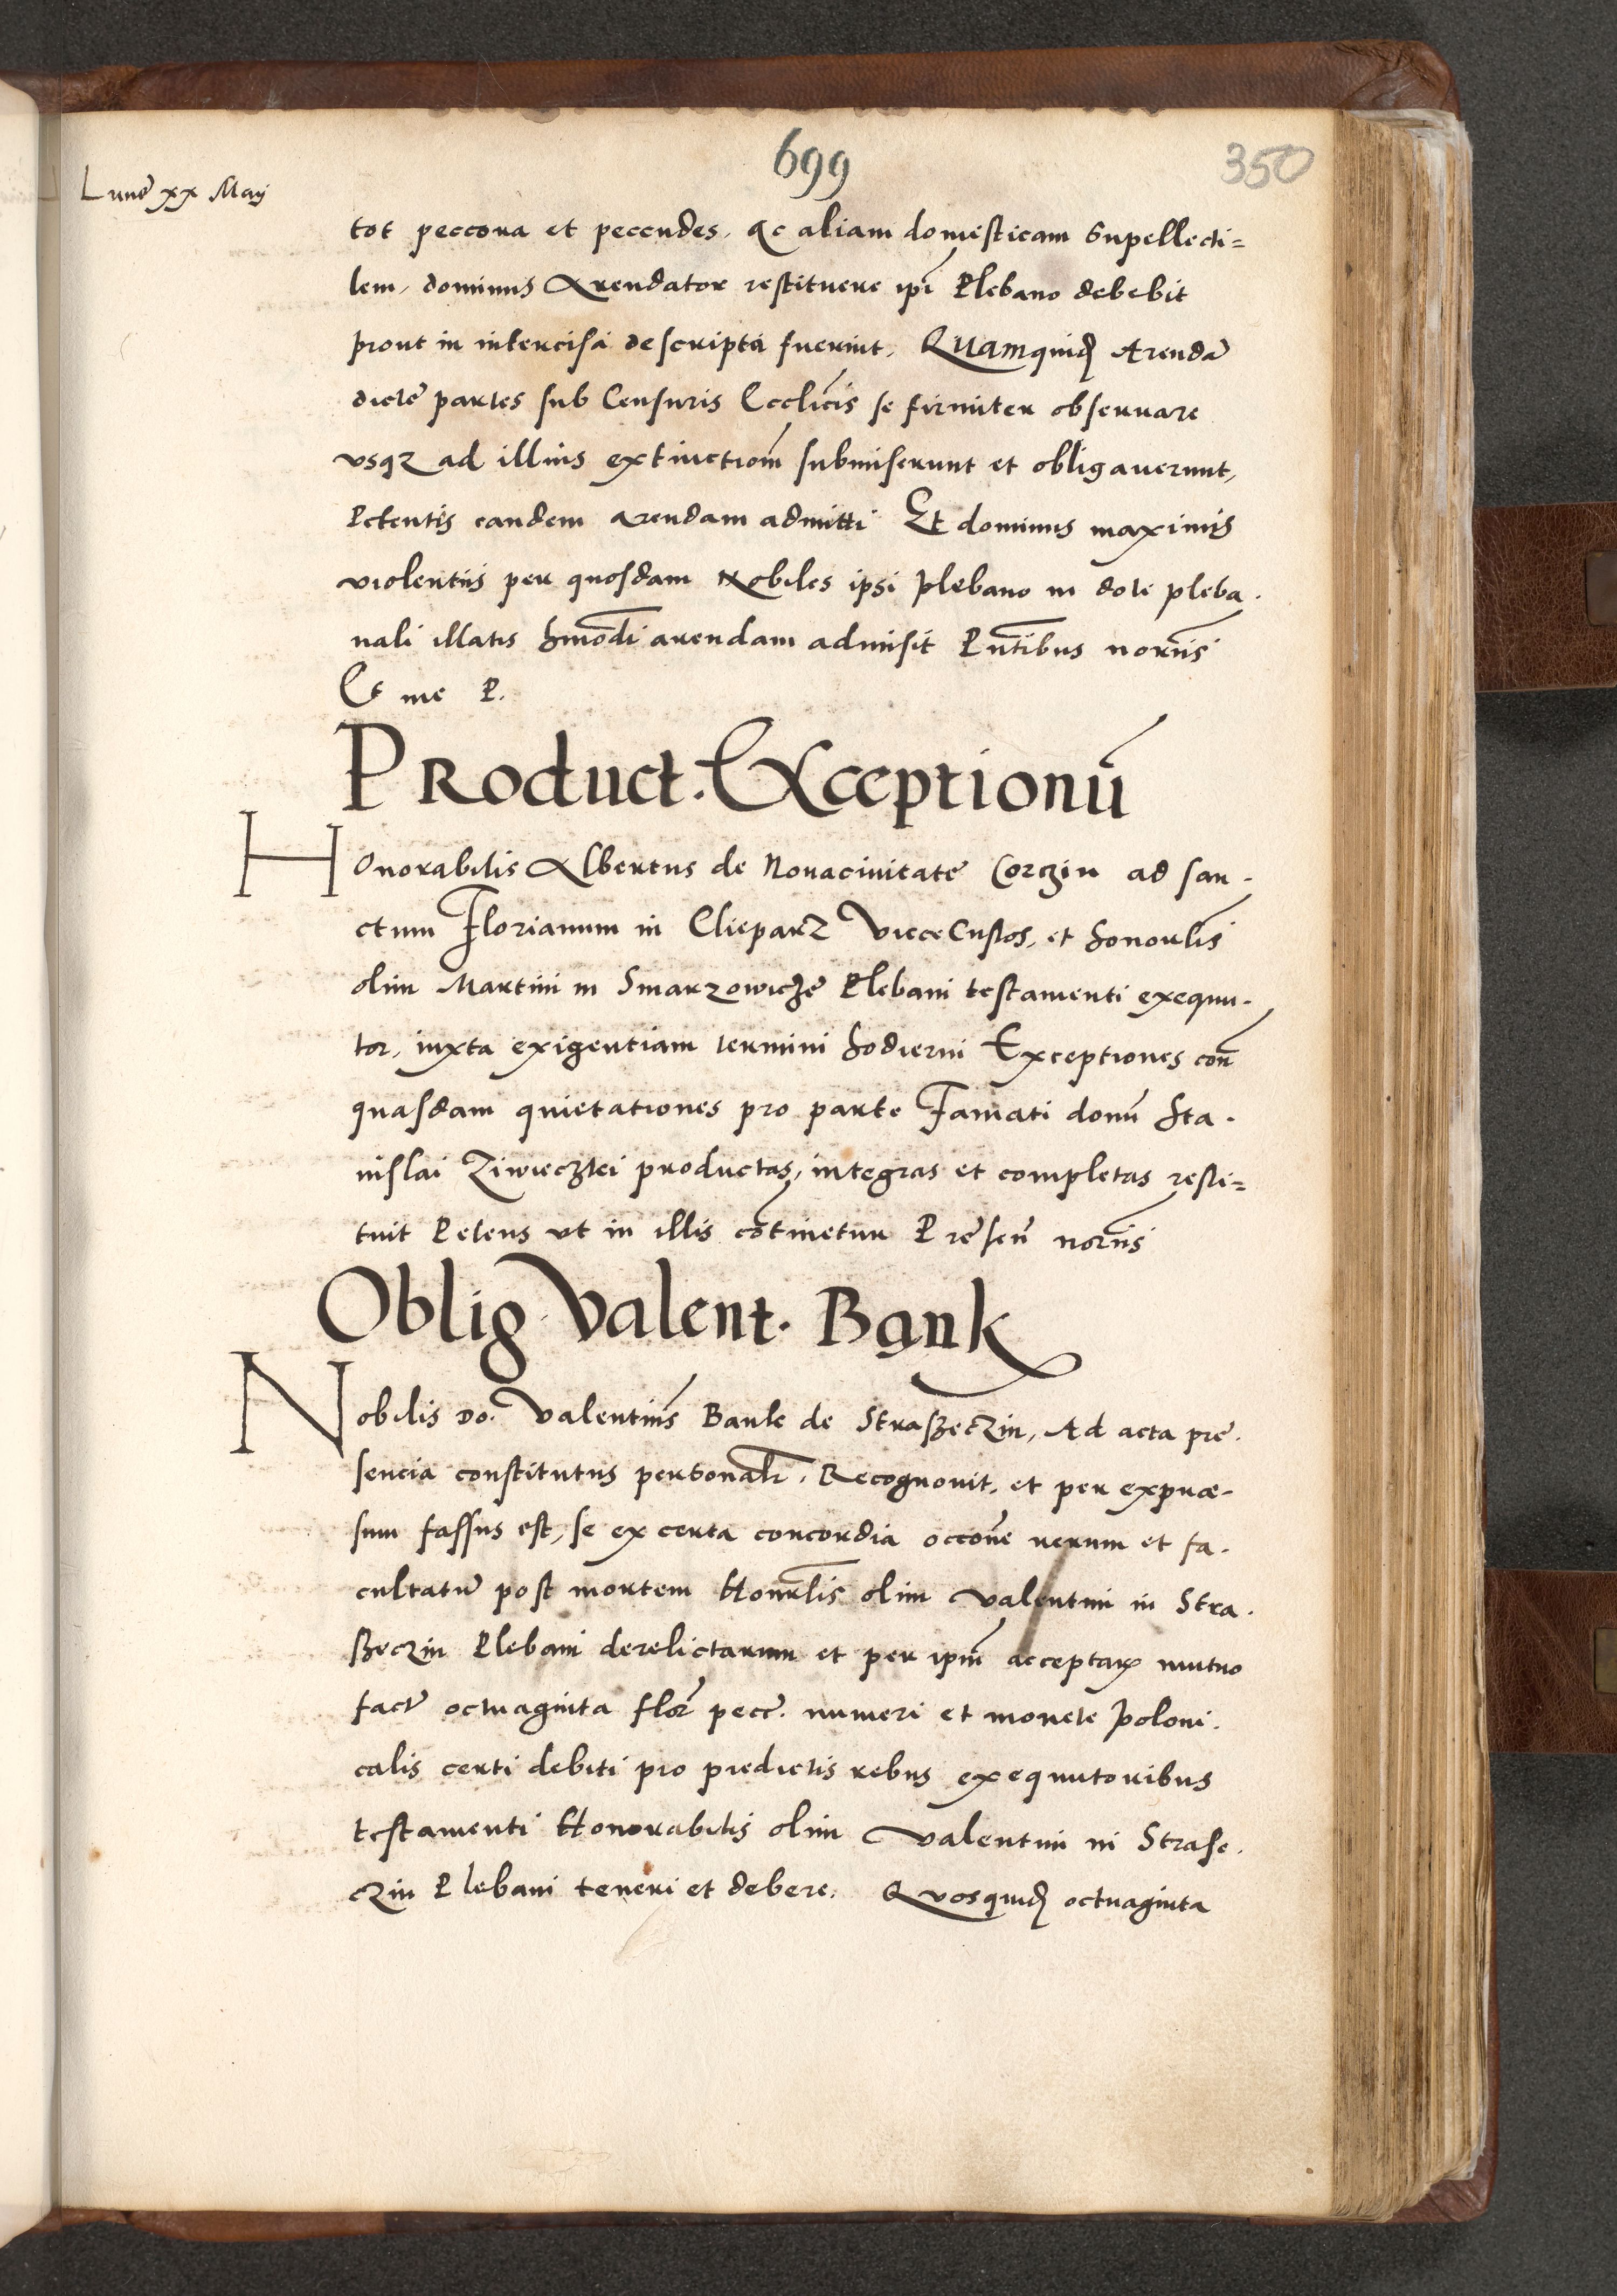 699
350
Lune xx Maij
tot peccora et peccudes, ac aliam domesticam Supellecti=
lem, dominus Arendator restituere ipī Plebano debebit
prout in intercisa descripta fuerint, Quamquid Arendā
dicte partes sub Censuris Eccl̄icis se firmiter obseruare
vsqz ad illius extinctiom̄ submiserunt et obligauerunt,
Petentis eandem arendam admitti Et dominus maximis
violentiis per quosdam Nobiles ipsi plebano in dote pleba.
nali illatis hm̄odi arendam admisit Pn̄tibus nor̄iis
Et me P.
Product. Exceptionū
Honorabilis Albertus de Nouaciuitate Corczin ad san-
ctum Florianum in Clieparz ViceCustos, et honorl̄is
olim Martini in Smarzowicze Plebani testamenti exequu-
tor, iuxta exigentiam termini hodierni Exceptiones con̄
quasdam quietationes pro parte Famati domī Sta-
nislai Ziwieczlei productas, integras et completas resti=
tuit Petens vt in illis cōtinetur Presen̄ nor̄iis
Oblig. Valent. Bank
Nobilis Do. Valentinus Bank de Straszeczin, Ad acta pre.
sencia constitutus personalr̄. Recognouit, et per exprae-
sum fassus est, se ex certa concordia occōne rerum et fa-
cultatum post mortem Honorl̄is olim Valentini in Stra-
szeczin Plebani derelictarum et per ipm̄ acceptarꝝ mutuo
factē octuaginta flor̄ pecc. numeri et monete Poloni-
calis certi debiti pro predictis rebus exequutoribus
testamenti Honorabilis olim Valentini in Strase-
czin Plebani teneri et debere. Quosquid octuaginta